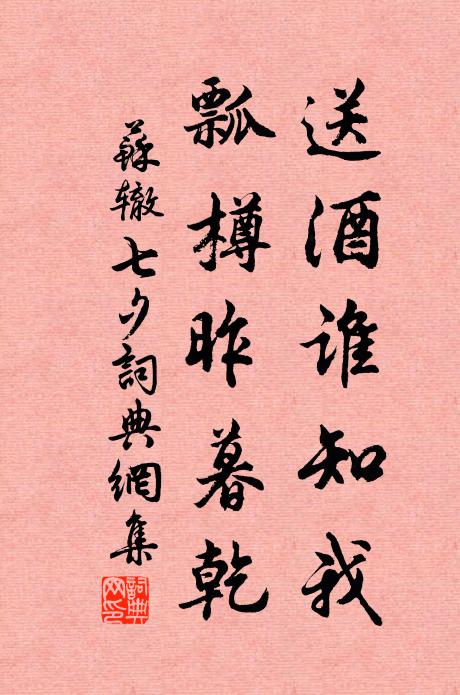 送酒谁知我
瓢樽昨暮乾
蘇辙七夕詞典網集
詞典网印